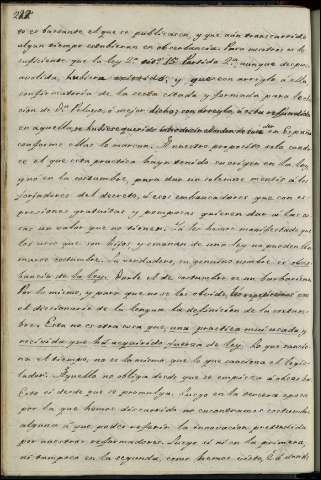 222
to es bastante el que se publicasen, y que aun transcurrido
algun tiempo estubieran en observancia. Para nosotros es lo
suficiente que la ley 2.ª tit.º 15 Partida 2.ª, aunque despues
anulada, hubiera existido, y que con arreglo a ella
confirmatoria de la secta citada y formada para la elec
cion de D.n Pelayo, ó mejor dicho, con arreglo, á esta refundida
en aquella, se hubiese querido introducir el orden de suceder en España
conforme ellas la marcan. A nuestro proposito esto condu
ce el que esta practica haya tenido su origen en la ley,
y no en la costumbre, para dar un solemne mentis á los
forjadores del decreto, á esos embaucadores que con es
presiones gratuitas y pomposas quieren dar á las co
sas un valor que no tienen. Ya les hemos manifestado que
los usos que son hijos y emanan de una ley no pueden lla
marse costumbre. Su verdadero, su genuino nombre es obser
bancia de la ley. Darle el de costumbre es un barbarismo
Por lo mismo, y para que no se les olvide, les repetimos en
el diccionario de la lengua la definicion de la costum
bre. Esta no es otra cosa que, una practica mui usada y
recivida que há adquirido fuerza de ley. Lo que sancio
na el tiempo, no es lo mismo que lo que sanciona el legis
lador. Aquello no obliga desde que se empieza á observar
Esto si desde que se promulga. Luego en la tercera epoca
por la que hemos discurrido no encontramos costumbre
alguna á que poder referir la innovacion pretendida
por nuestros reformadores. Luego si ni en la primera,
ni tampoco en la segunda, como hemos visto,